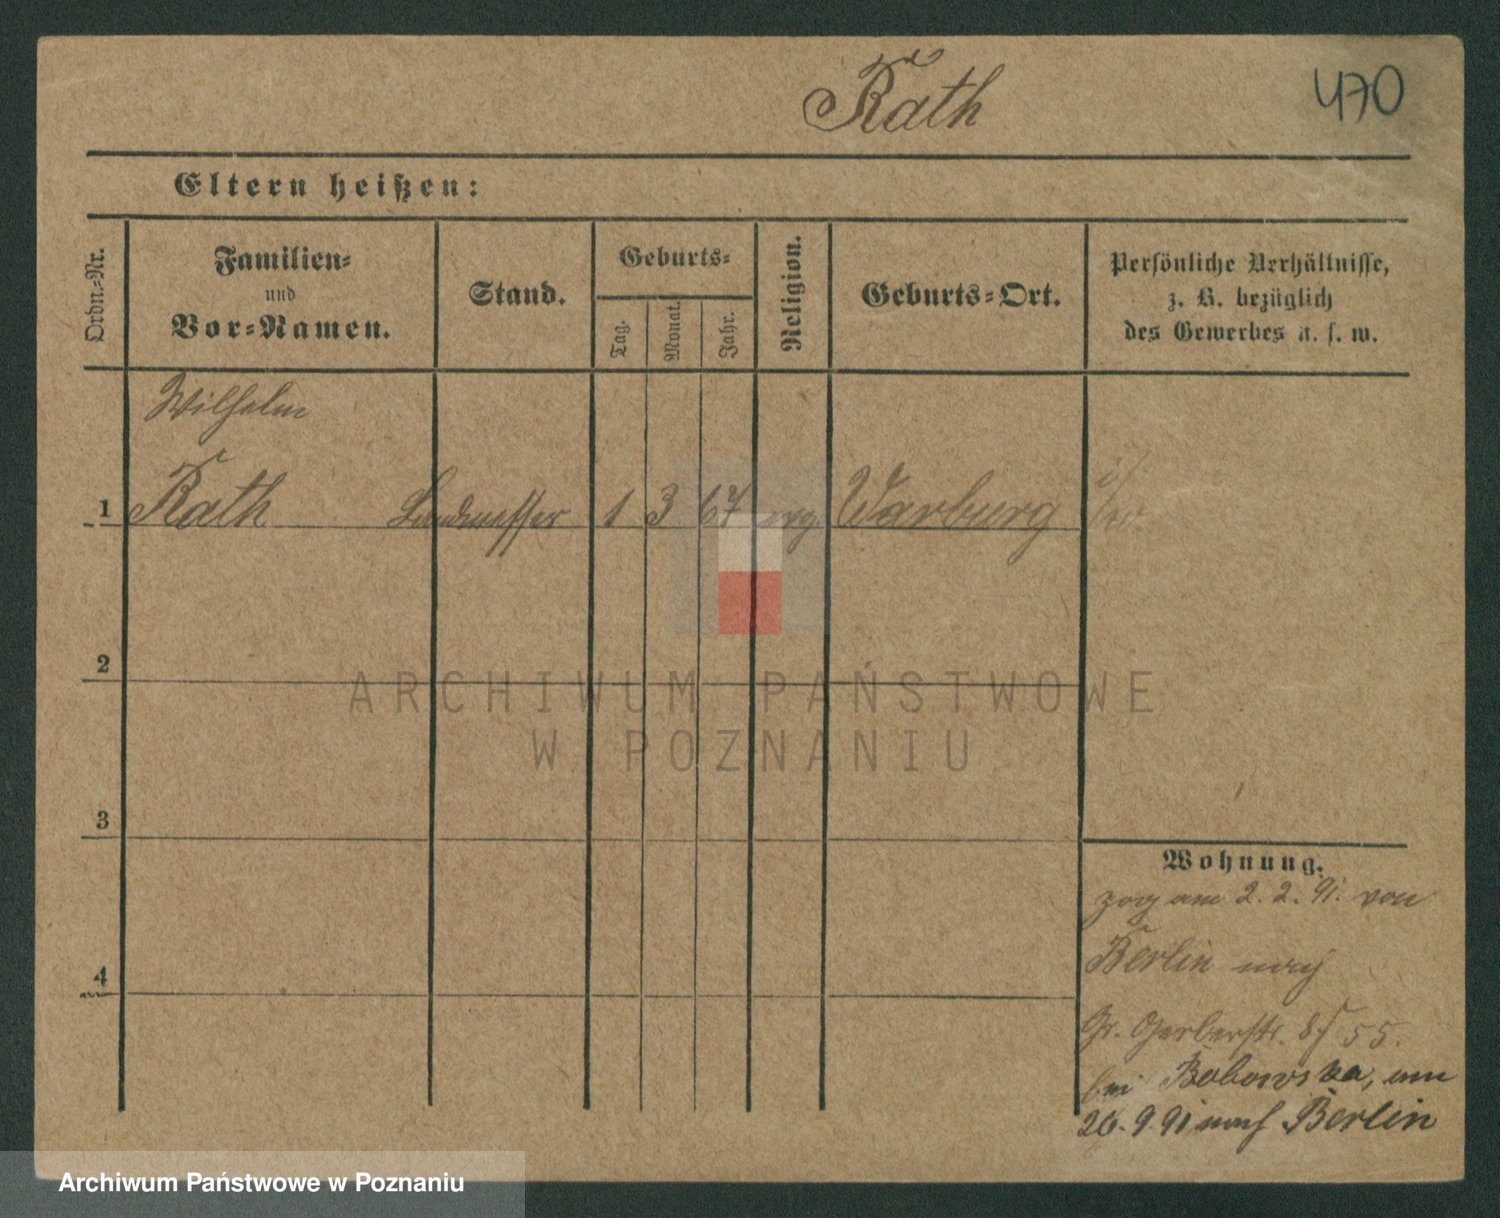 Rath
470
Eltern heißen:
Ordn.-Nr.
Familien-
und
Vor-Namen.
Stand.
Geburts-
Tag.
Monat.
Jahr.
Religion.
Geburts-Ort.
Persönliche Verhältnisse,
z. B. bezüglich
des Gewerbes u. s. w.
Wilhelm
1 Rath Landmesser 1 3 67 evg. Warburg
2
3
4
Wohnung.
zog am 2. 2. 91. von
Berlin nach
Gr. Gerberstr. 55.
bei Bobowska, am
26. 9. 91 nach Berlin
ARCHIWUM PAŃSTWOWE
W POZNANIU
Archiwum Państwowe w Poznaniu